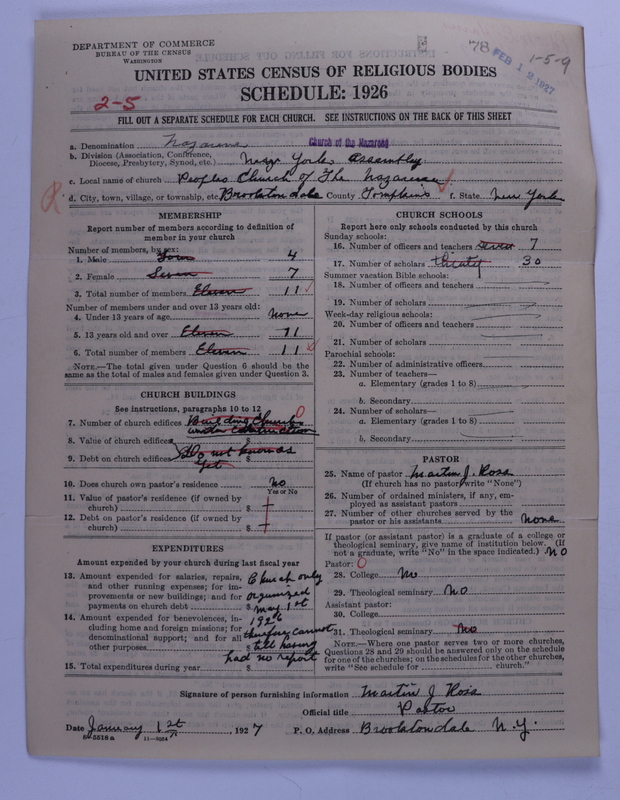 DEPARTMENT OF COMMERCE
BUREAU OF THE CENSUS
WASHINGTON
78
FEB 12 1927
1-5-9
UNITED STATES CENSUS OF RELIGIOUS BODIES
SCHEDULE: 1926
2-5
FILL OUT A SEPARATE SCHEDULE FOR EACH CHURCH. SEE INSTRUCTIONS ON THE BACK OF THIS SHEET
a. Denomination Nazarene Church of the Nazarene
b. Division (Association, Conference,
Diocese, Presbytery, Synod, etc.) New Yorke Assembly
c. Local name of church Peoples Church of The Nazarene
d. City, town, village, or township, etc. Brooktondale County Tompkins f. State New Yorke
MEMBERSHIP
Report number of members according to definition of
member in your church
Number of members, by sex:
1. Male Four 4
2. Female Seven 7
3. Total number of members Eleven 11
Number of members under and over 13 years old:
4. Under 13 years of age None
5. 13 years old and over Eleven 11
6. Total number of members Eleven 11
NOTE.—The total given under Question 6 should be the
same as the total of males and females given under Question 3.
CHURCH BUILDINGS
See instructions, paragraphs 10 to 12
7. Number of church edifices Building Church 0
under construction
8. Value of church edifices $
9. Debt on church edifices $ Do not know as
yet
10. Does church own pastor's residence? No
Yes or No
11. Value of pastor's residence (if owned by
church) $
12. Debt on pastor's residence (if owned by
church) $
EXPENDITURES
Amount expended by your church during last fiscal year
13. Amount expended for salaries, repairs, Church only
and other running expenses; for im-
provements or new buildings; and for organized
payments on church debt $ May 1st
14. Amount expended for benevolences, in- 1926
cluding home and foreign missions; for
denominational support; and for all therefore cannot
other purposes $ tell having
had no report
15. Total expenditures during year $
CHURCH SCHOOLS
Report here only schools conducted by this church
Sunday schools:
16. Number of officers and teachers seven 7
17. Number of scholars thirty 30
Summer vacation Bible schools:
18. Number of officers and teachers
19. Number of scholars
Week-day religious schools:
20. Number of officers and teachers
21. Number of scholars
Parochial schools:
22. Number of administrative officers
23. Number of teachers—
a. Elementary (grades 1 to 8)
b. Secondary
24. Number of scholars—
a. Elementary (grades 1 to 8)
b. Secondary
PASTOR
25. Name of pastor Martin J. Ross
(If church has no pastor, write "None")
26. Number of ordained ministers, if any, em-
ployed as assistant pastors
27. Number of other churches served by the
pastor or his assistants None
If pastor (or assistant pastor) is a graduate of a college or
theological seminary, give name of institution below. (If
not a graduate, write "No" in the space indicated.) No
Pastor: 0
28. College No
29. Theological seminary No
Assistant pastor:
30. College
31. Theological seminary No
NOTE.—Where one pastor serves two or more churches,
Questions 28 and 29 should be answered only on the schedule
for one of the churches; on the schedules for the other churches,
write "See schedule for church."
Signature of person furnishing information Martin J Ross
Official title Pastor
Date January 1st, 1927 P. O. Address Brooktondale N.Y.
8-5518a 11-9084